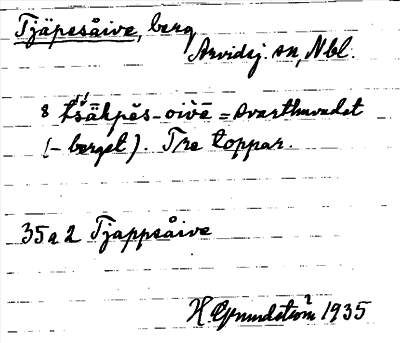 Tjäpesåive, berg
Arvidsj. sn, Nbl.
8 tsäkpēs-oivē = Svarthuvudet
(- berget). Tre toppar.
35 a 2 Tjappsåive
H. Grundström 1935